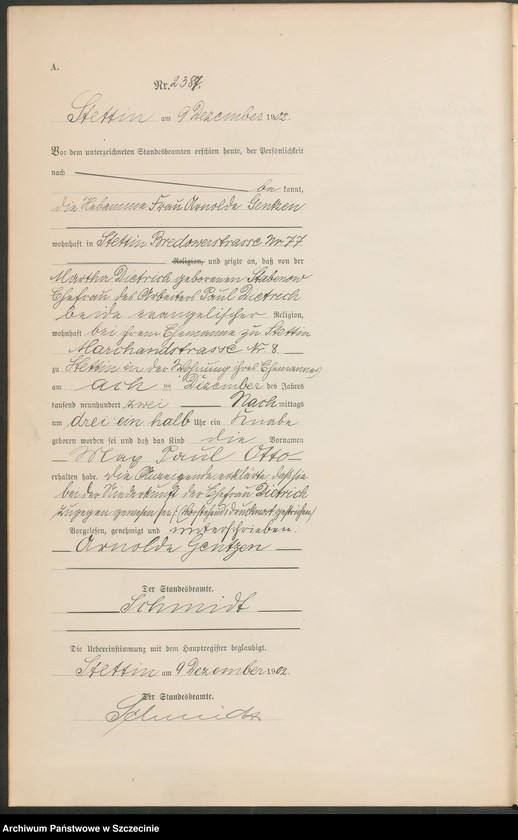 A.
Nr. 2387.
Stettin am 9 Dezember 1902.
Vor dem unterzeichneten Standesbeamten erschien heute, der Persönlichkeit
nach
be kannt,
die Hebamme Frau Arnolde Gentzen
wohnhaft in Stettin Bredowerstrasse Nr. 77
Religion, und zeigte an, daß von der
Martha Dietrich geborenen Stabenow
Ehefrau des Arbeiters Paul Dietrich
beide evangelischer Religion,
wohnhaft bei ihrem Ehemanne zu Stettin
Marchandstrasse Nr 8.
zu Stettin in der Wohnung ihres Ehemannes
am acht ten Dezember des Jahres
tausend neunhundert zwei Nach mittags
um drei ein halb Uhr ein Knabe
geboren worden sei und daß das Kind die Vornamen
Max Paul Otto
erhalten habe. Die Anzeigende erklärte, daß sie
bei der Niederkunft der Ehefrau Dietrich
zugegen gewesen sei. (Vorstehend 1 Druckwort gestrichen)
Vorgelesen, genehmigt und unterschrieben.
Arnolde Gentzen
Der Standesbeamte.
Schmidt
Die Uebereinstimmung mit dem Hauptregister beglaubigt.
Stettin am 9 Dezember 1902.
Der Standesbeamte.
Schmidt
Archiwum Państwowe w Szczecinie